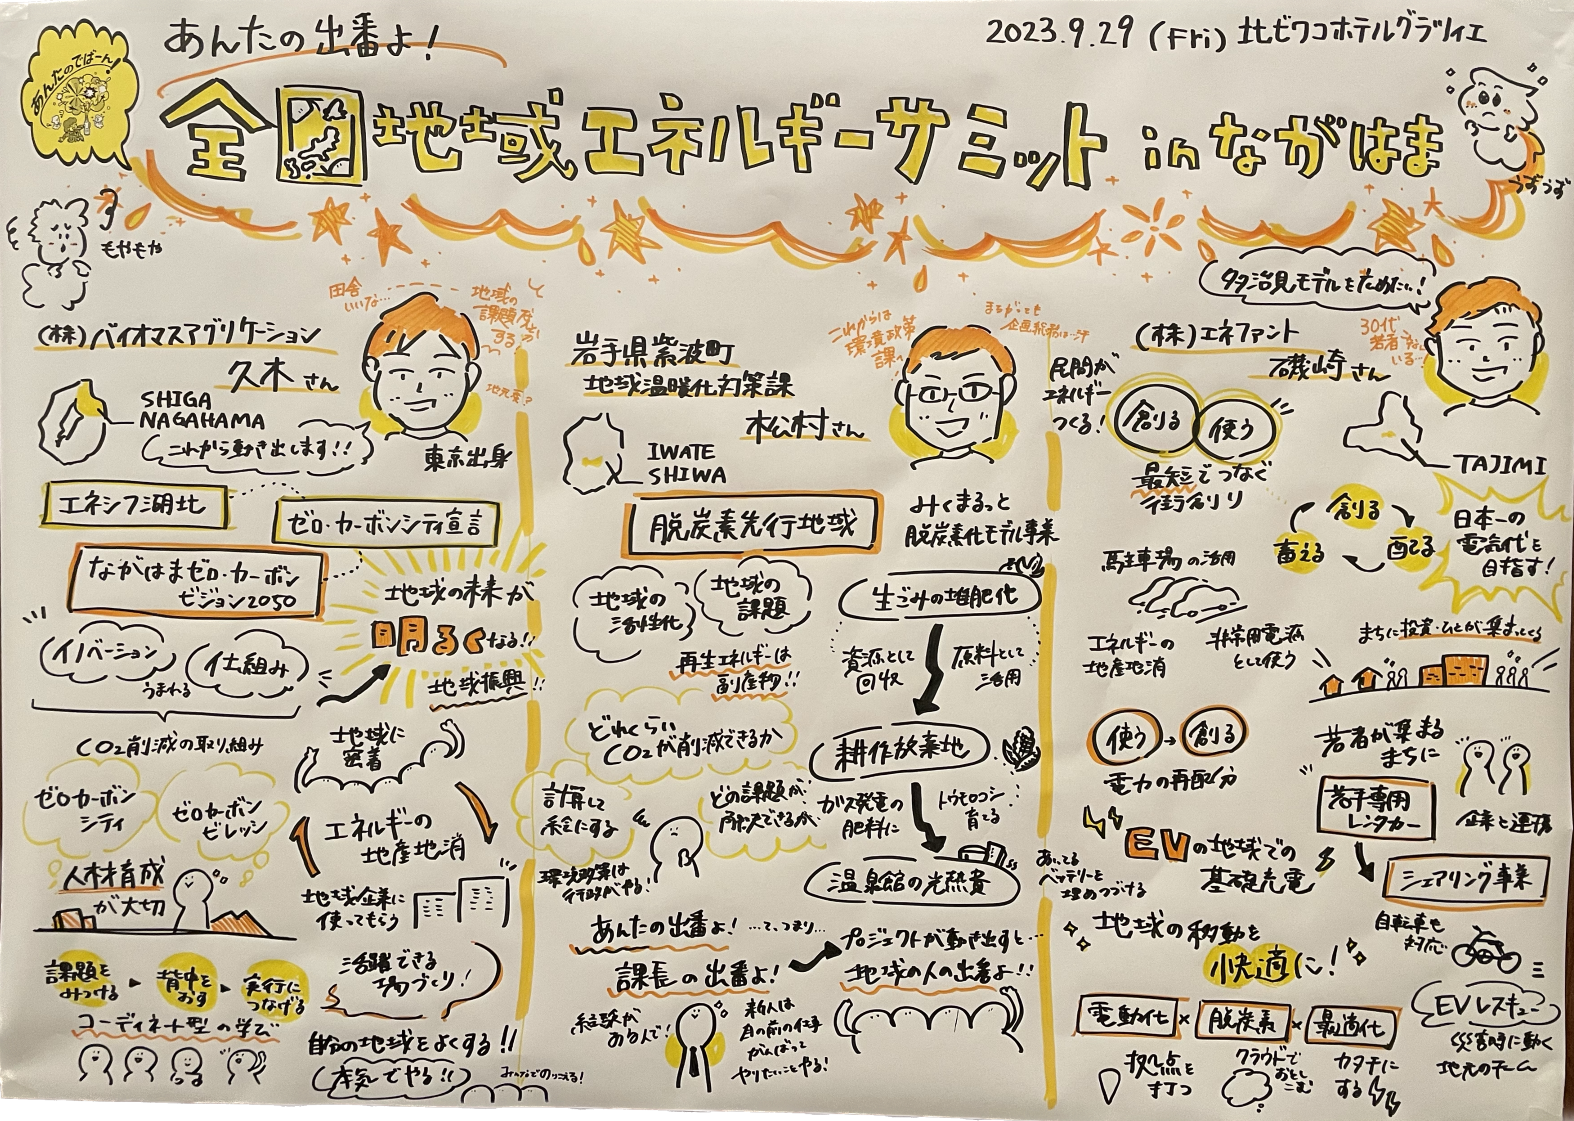 あんたのでばーん!
あんたの出番よ!
2023.9.29 (Fri) 北ビワコホテルグラツィエ
全国地域エネルギーサミット in ながはま
うずうず
もやもや
(株)バイオマスアグリケーション
久木さん
田舎
いいな…
地域の
課題
する
SHIGA
NAGAHAMA
これから動き出します!!
東京出身
エネシフ湖北
ゼロ・カーボンシティ宣言
ながはまゼロ・カーボン
ビジョン2050
地域の未来が
明るくなる!!
地域振興!!
イノベーション
うまれる
仕組み
CO2削減の取り組み
ゼロカーボン
シティ
ゼロカーボン
ビレッジ
人材育成
が大切
地域に
密着
エネルギーの
地産地消
地域企業に
使ってもらう
課題を
みつける
背中を
おす
実行に
つなげる
コーディネート型の学び
活躍できる
場づくり!
自分の地域をよくする!!
本気でやる!!
みんなでのりこえる!
岩手県紫波町
地域温暖化対策課
松村さん
これからは
環境政策
課へ
IWATE
SHIWA
脱炭素先行地域
みくまるっと
脱炭素化モデル事業
地域の
活性化
地域の
課題
再生エネルギーは
副産物!!
どれくらい
CO2が削減できるか
計算して
絵にする
どの課題が
解決できるか
環境政策は
行政がやる!
生ごみの堆肥化
資源として
回収
原料として
活用
耕作放棄地
ガス発電の
肥料に
トウモロコシ
育てる
温泉館の光熱費
あんたの出番よ! …て、つまり…
課長の出番よ!
プロジェクトが動き出すと…
地域の人の出番よ!!
経験が
あるんで!
新人は
目の前の仕事
がんばって
やりたいことやる!
多治見モデルをためたい!
(株)エネファント
磯崎さん
30代
若者
いる…
TAJIMI
民間が
エネルギー
つくる!
創る
使う
最短でつなぐ
街創り
創る
配る
蓄える
日本一の
電気代を
目指す!
駐車場の活用
エネルギーの
地産地消
非常用電源
として使う
まちに投資・ひとが集まってくる
使う→創る
電力の再配分
若者が集まる
まちに
若手専用
レンタカー
企業と連携
EVの地域での
基礎充電
あいてる
バッテリーを
埋めつづける
シェアリング事業
自転車も
対応
地域の移動を
快適に!
電動化×脱炭素×最適化
拠点を
打つ
クラウドで
おとし
こむ
カタチに
する
EVレスキュー
災害時に動く
地元のチーム